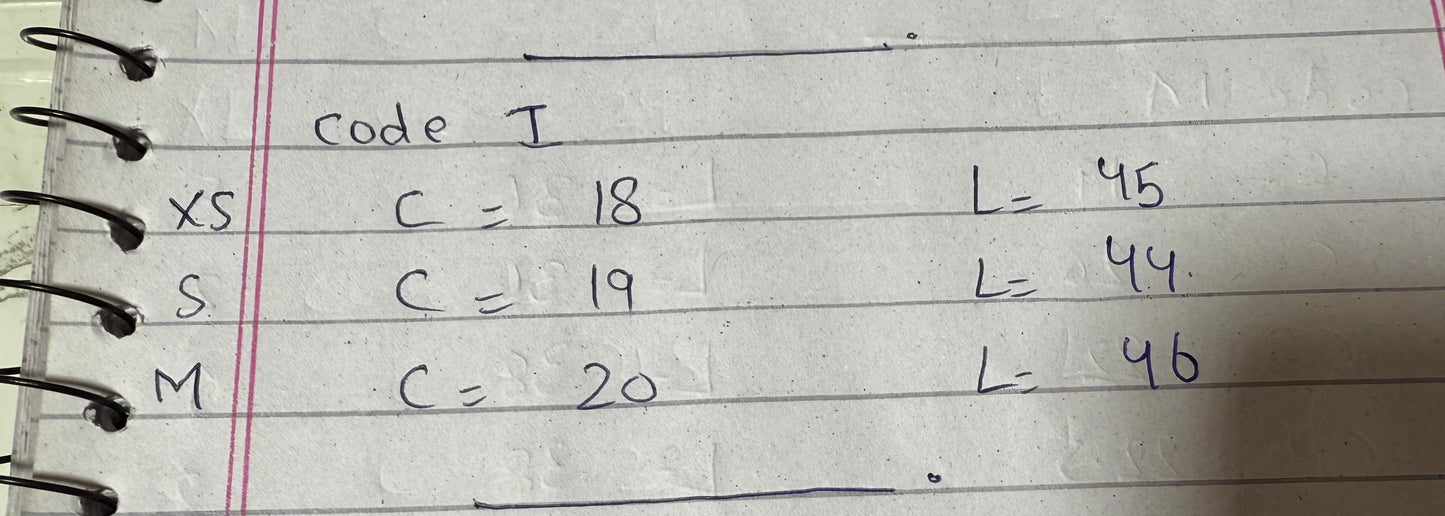 code I
XS C = 18 L= 45
S C = 19 L= 44
M C = 20 L= 46